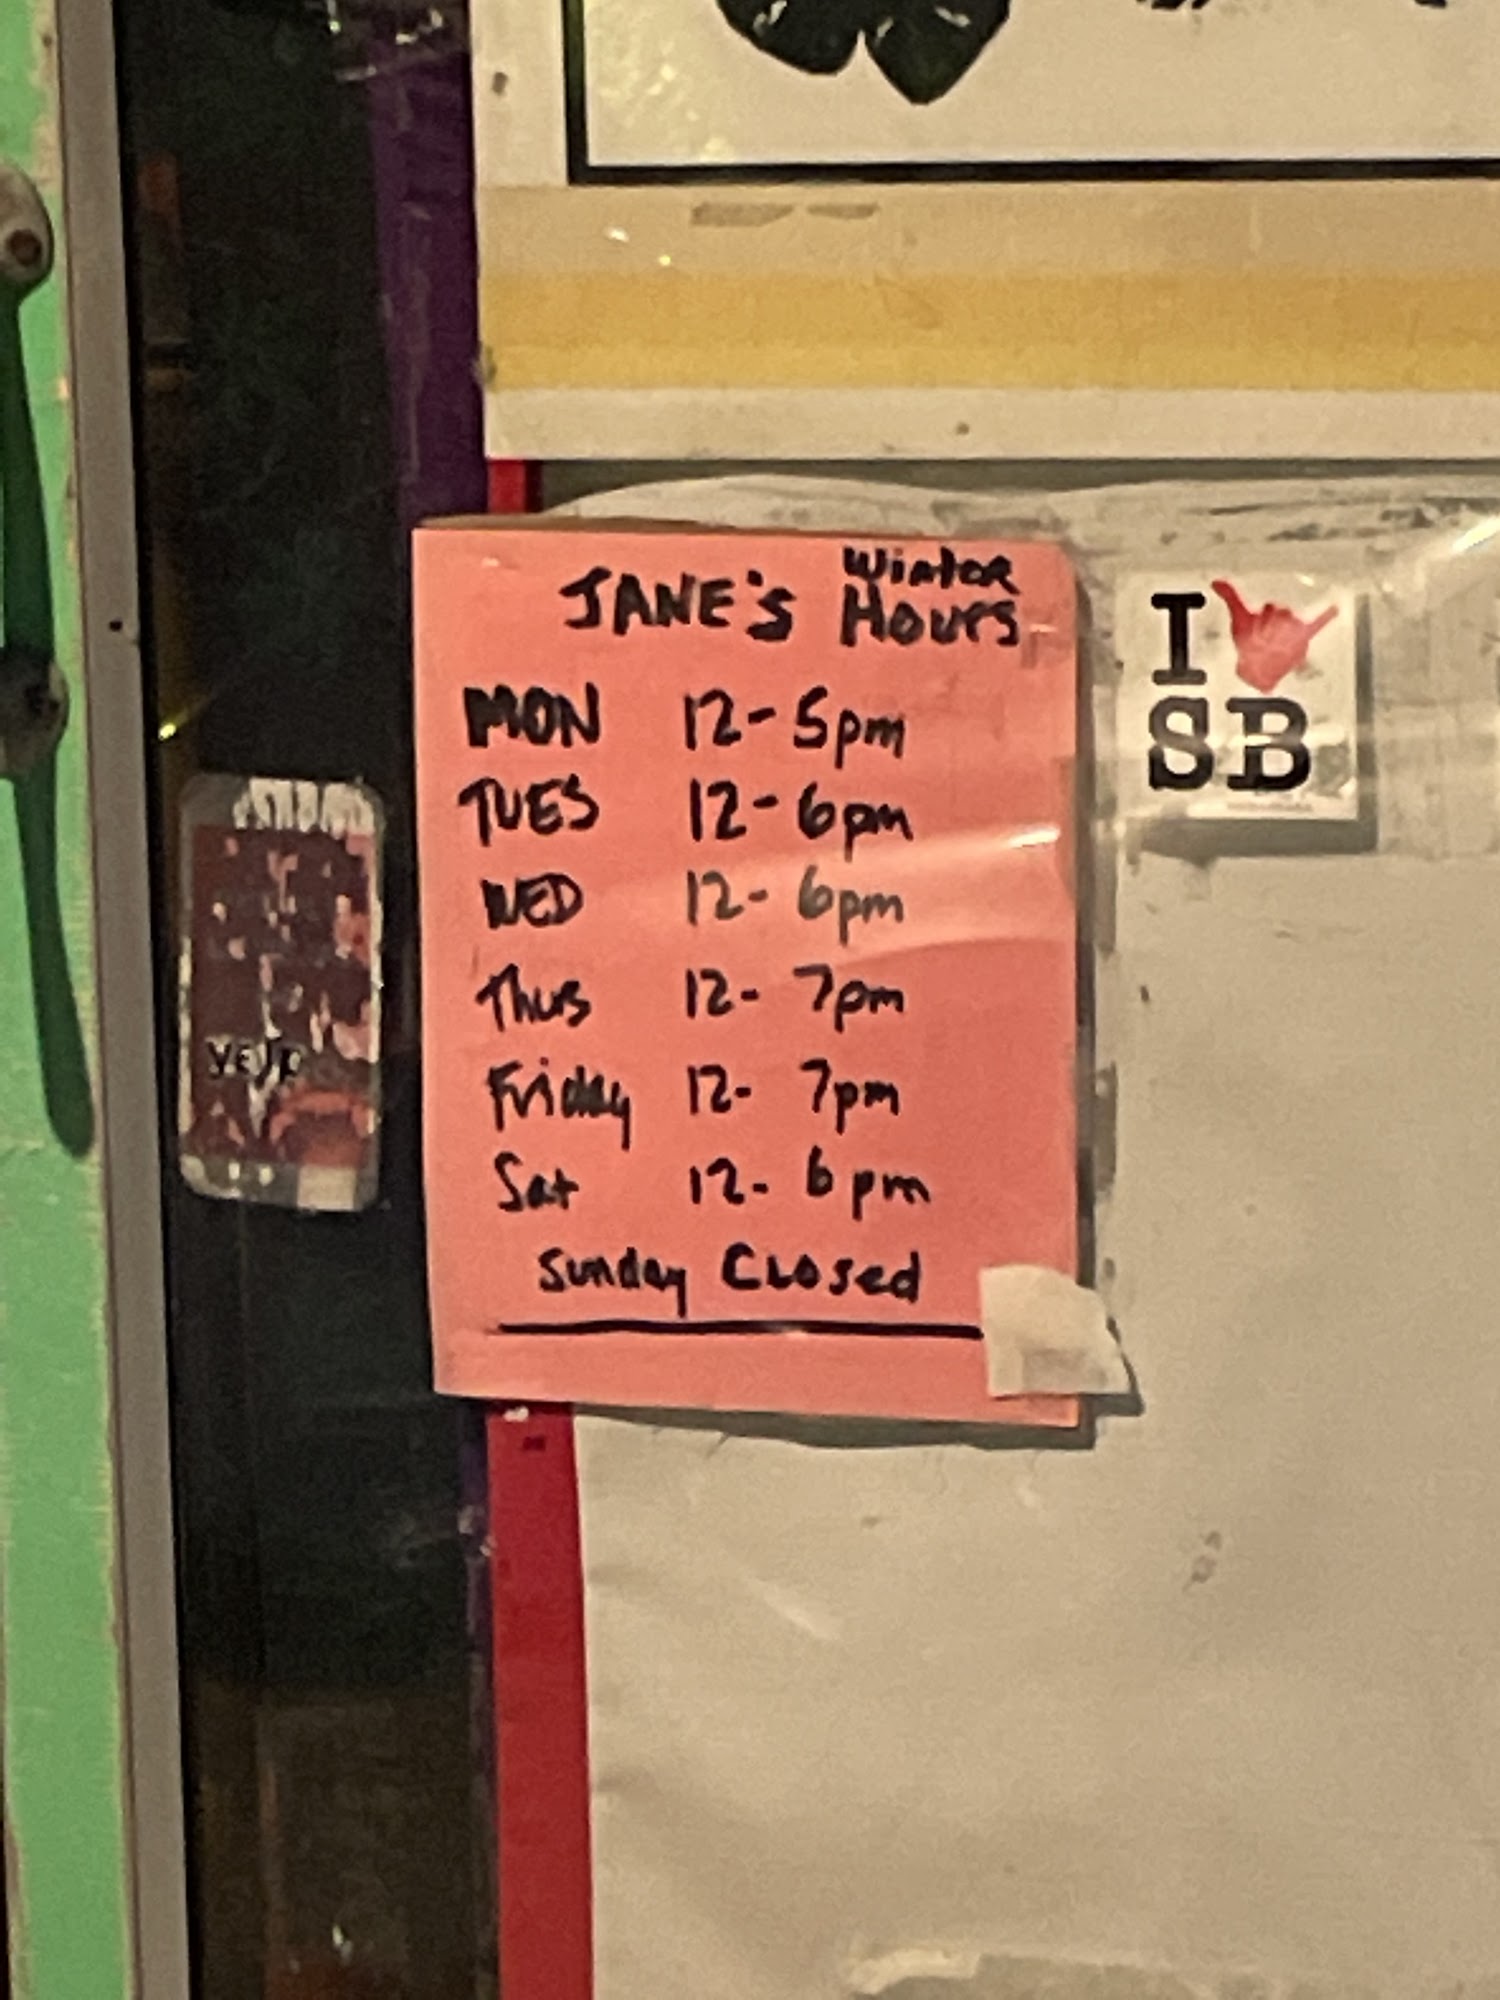 JANE'S Winter Hours
MON 12-5pm
TUES 12-6pm
WED 12-6pm
Thus 12-7pm
Friday 12-7pm
Sat 12-6pm
Sunday Closed
I
SB
yelp